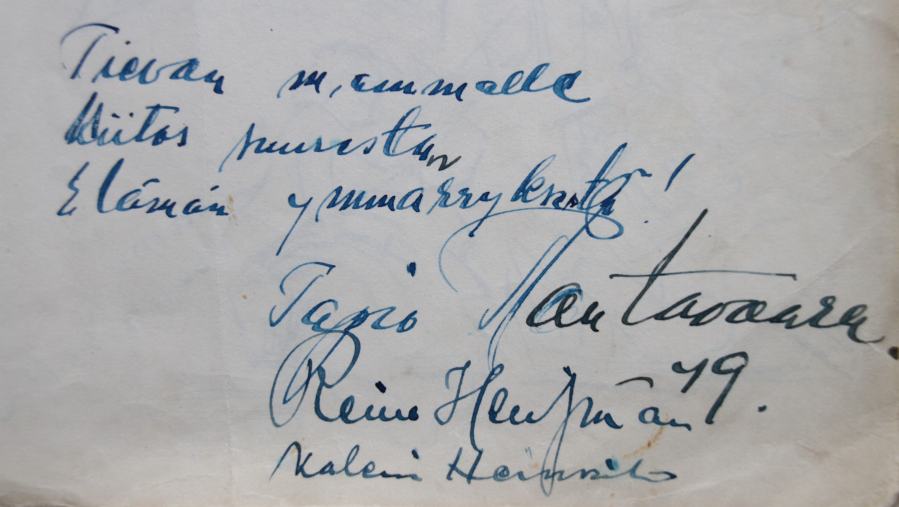 Tievan mammalle
Kiitos suuresta
Elämän ymmärryksestä!
Tapio Rautavaara.
Reino Helismaa 49.
Kalein